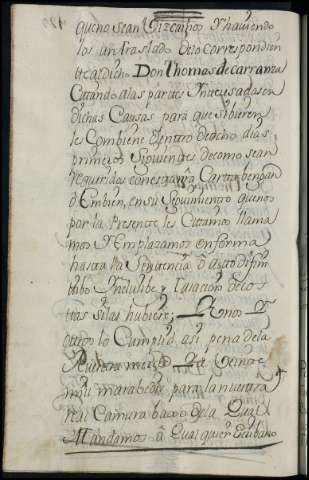 queno sean Vizcainos Y haviendo
los un traslado delo correspondien
te al dicho Don Thomas de Carranza
Citando alas partes Ynteresadas en
dichas Causas para que si bieren
les Combiene dentro de ocho dias
primeros Siguientes de como sean
rrequeridos con esta nra Carta bengan
ô Embien, en su Seguimiento que nos
por la presente les Citamos llama
mos Y Emplazamos en forma
hasta la Sentencia ô auto difini
tibo Yncluibe Y tasacion de cos
tas si las hubiere; Y los unos Y
otros lo Cumplid asi pena dela
Nuestra merced Y de Veinte
mill marabedis para la nuestra
real Camara baxo dela Qual
Mandamos â Qual quier Escribano